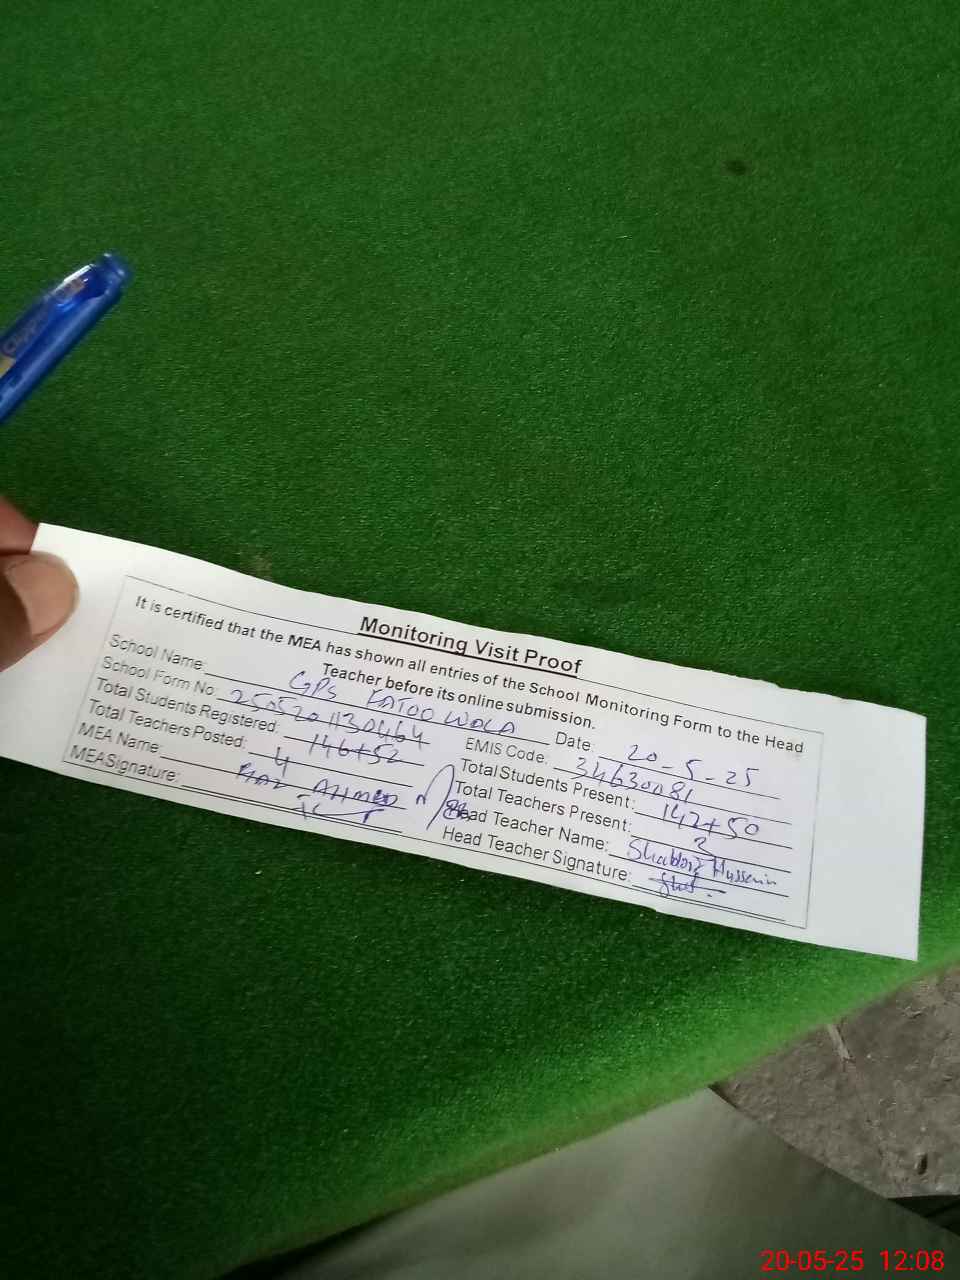 Monitoring Visit Proof
It is certified that the MEA has shown all entries of the School Monitoring Form to the Head
Teacher before its online submission.
School Name: GPS FATOO WALA Date: 20-5-25
School Form No: 2505201130464 EMIS Code: 34630081
Total Students Registered: 146+52 Total Students Present: 142+50
Total Teachers Posted: 4 Total Teachers Present: 2
MEA Name: AHMED Head Teacher Name: Hussain
MEASignature: Head Teacher Signature:
20-05-25 12:08